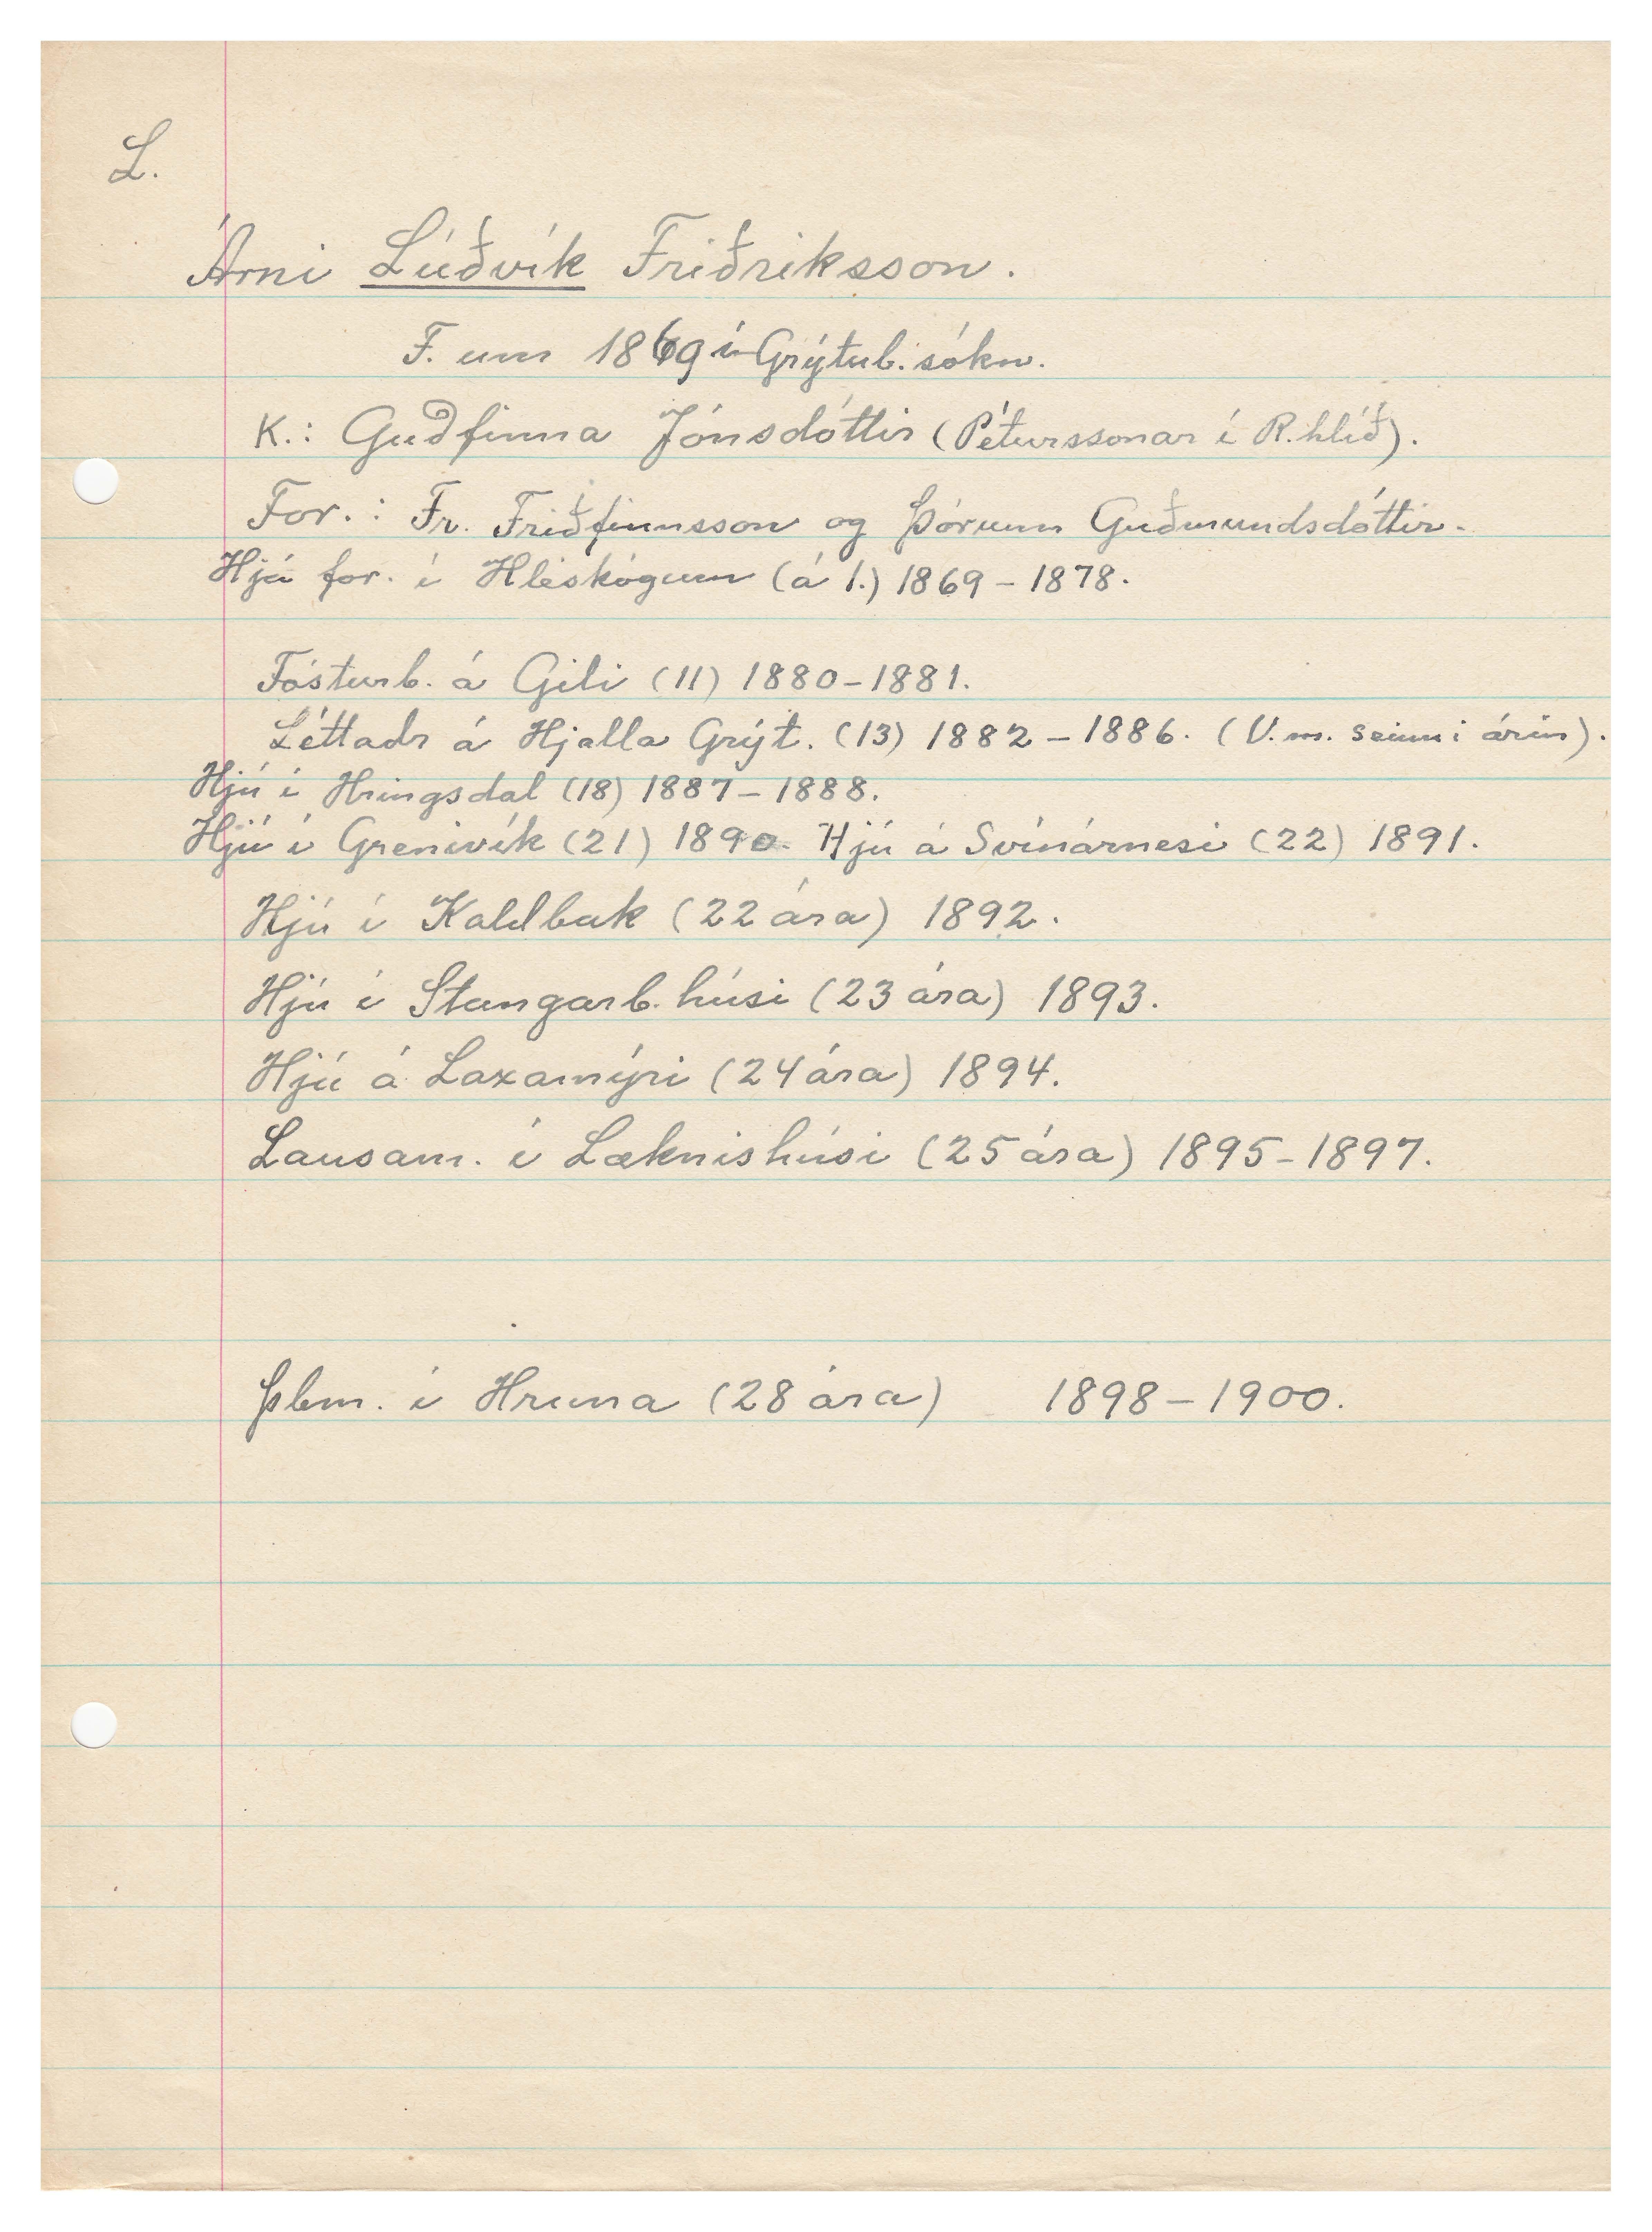 L.
Árni Lúðvík Friðriksson.
F. um 1869 í Grýtub. sókn.
K.: Guðfinna Jónsdóttir (Péturssonar í R.hlíð).
For.: Fr. Friðfinnsson og Þórunn Guðmundsdóttir.
Hjá for. í Hléskógum (á 1.) 1869 - 1878.
Fósturb. á Gili (11) 1880-1881.
Léttadr á Hjalla Grýt. (13) 1882 - 1886. (V.m. seinni árin).
Hjú í Hringsdal (18) 1887 - 1888.
Hjú í Grenivík (21) 1890. Hjú á Svínárnesi (22) 1891.
Hjú í Kaldbak (22 ára) 1892.
Hjú í Stangarb. húsi (23 ára) 1893.
Hjú á Laxamýri (24 ára) 1894.
Lausam. í Læknishúsi (25 ára) 1895-1897.
Þbm. í Hruna (28 ára) 1898-1900.